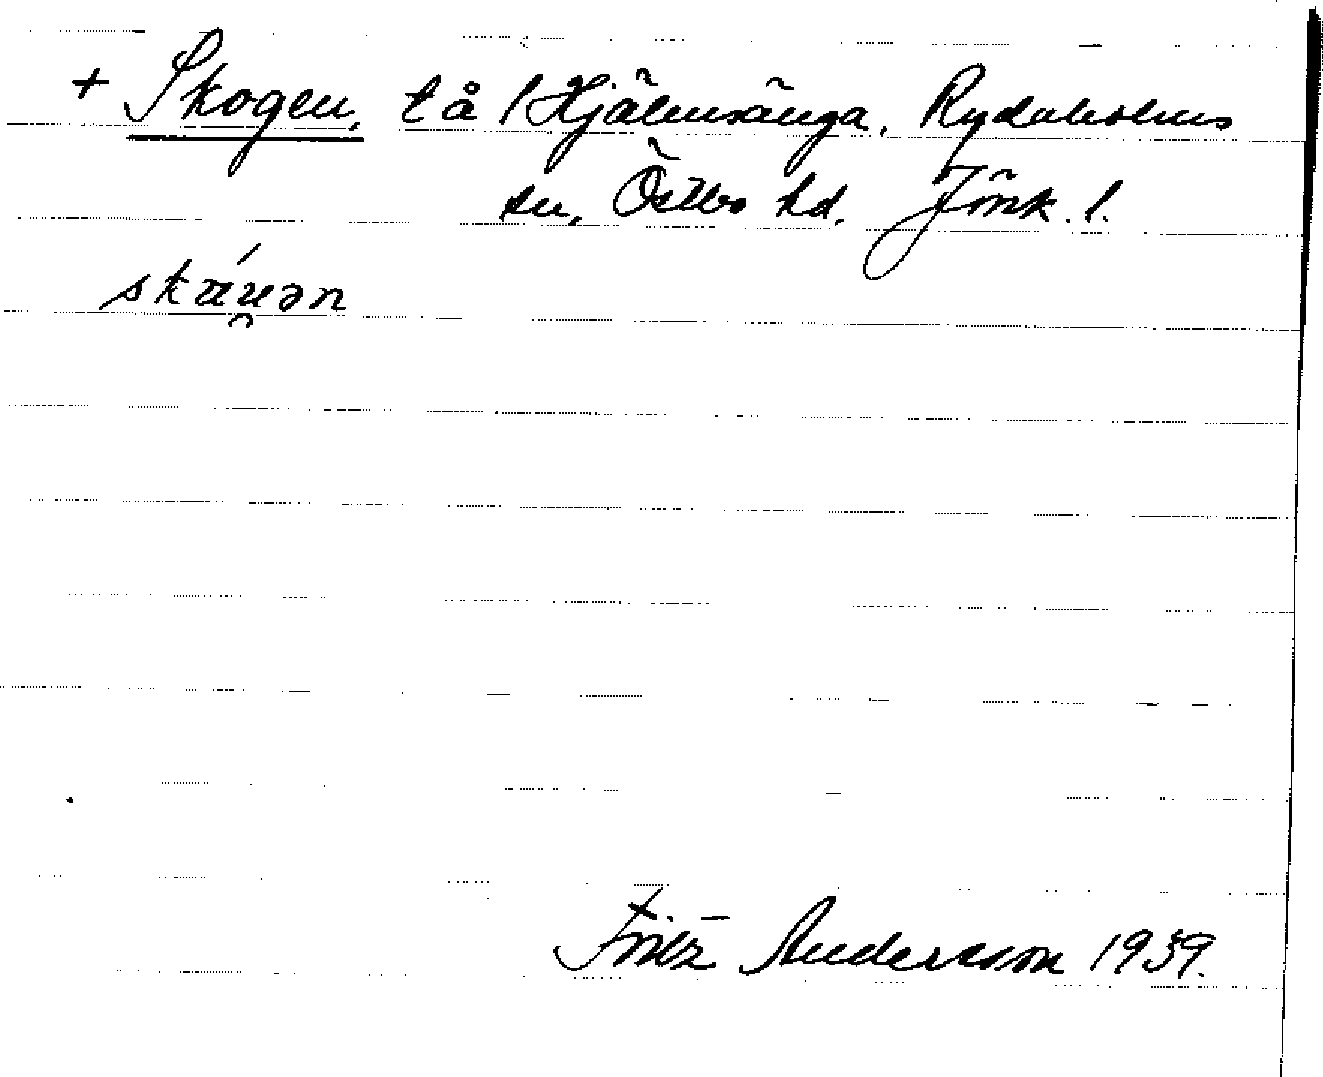 + Skogen, t å / Hjälmsänga, Rydaholms
sn, Östbo hd. Jönk. l.
Fritz Andersson 1939.